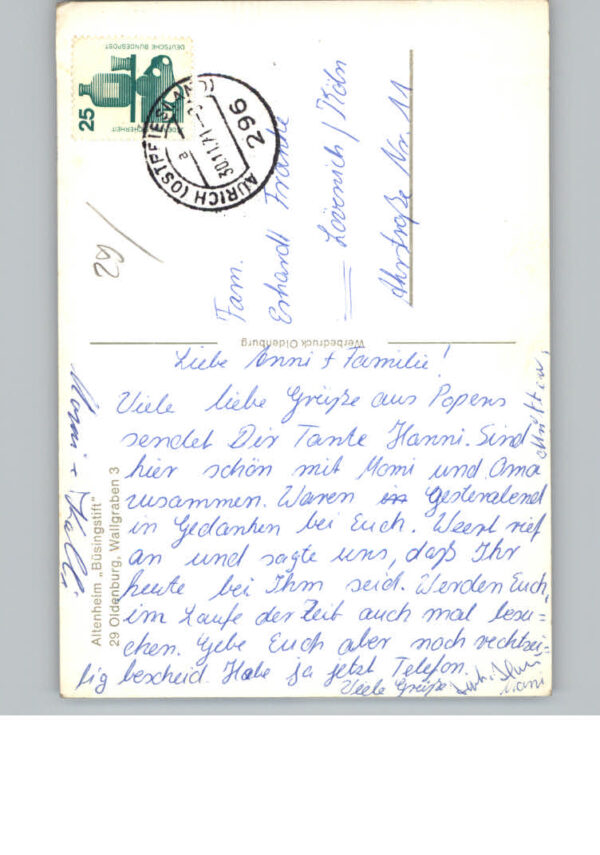 DEUTSCHE BUNDESPOST
25
JEDERZEIT SICHERHEIT
AURICH (OSTFRIESLAND)
30.11.71
a
296
/62
Fam.
Erhardt Franke
Lövenich / Köln
Ahrstraße Nr. 11
Werbedruck Oldenburg
Altenheim „Büsingstift"
29 Oldenburg, Wallgraben 3
Liebe Anni + Familie!
Viele liebe Grüße aus Popens
sendet Dir Tante Hanni. Sind
hier schön mit Momi und Oma
zusammen. Waren Gesternabend
in Gedanken bei Euch. Weert rief
an und sagte uns, daß Ihr
heute bei Ihm seid. Werden Euch,
im Laufe der Zeit auch mal besu=
chen. Gebe Euch aber noch rechtzei=
tig bescheid. Habe ja jetzt Telefon.
Viele Grüße